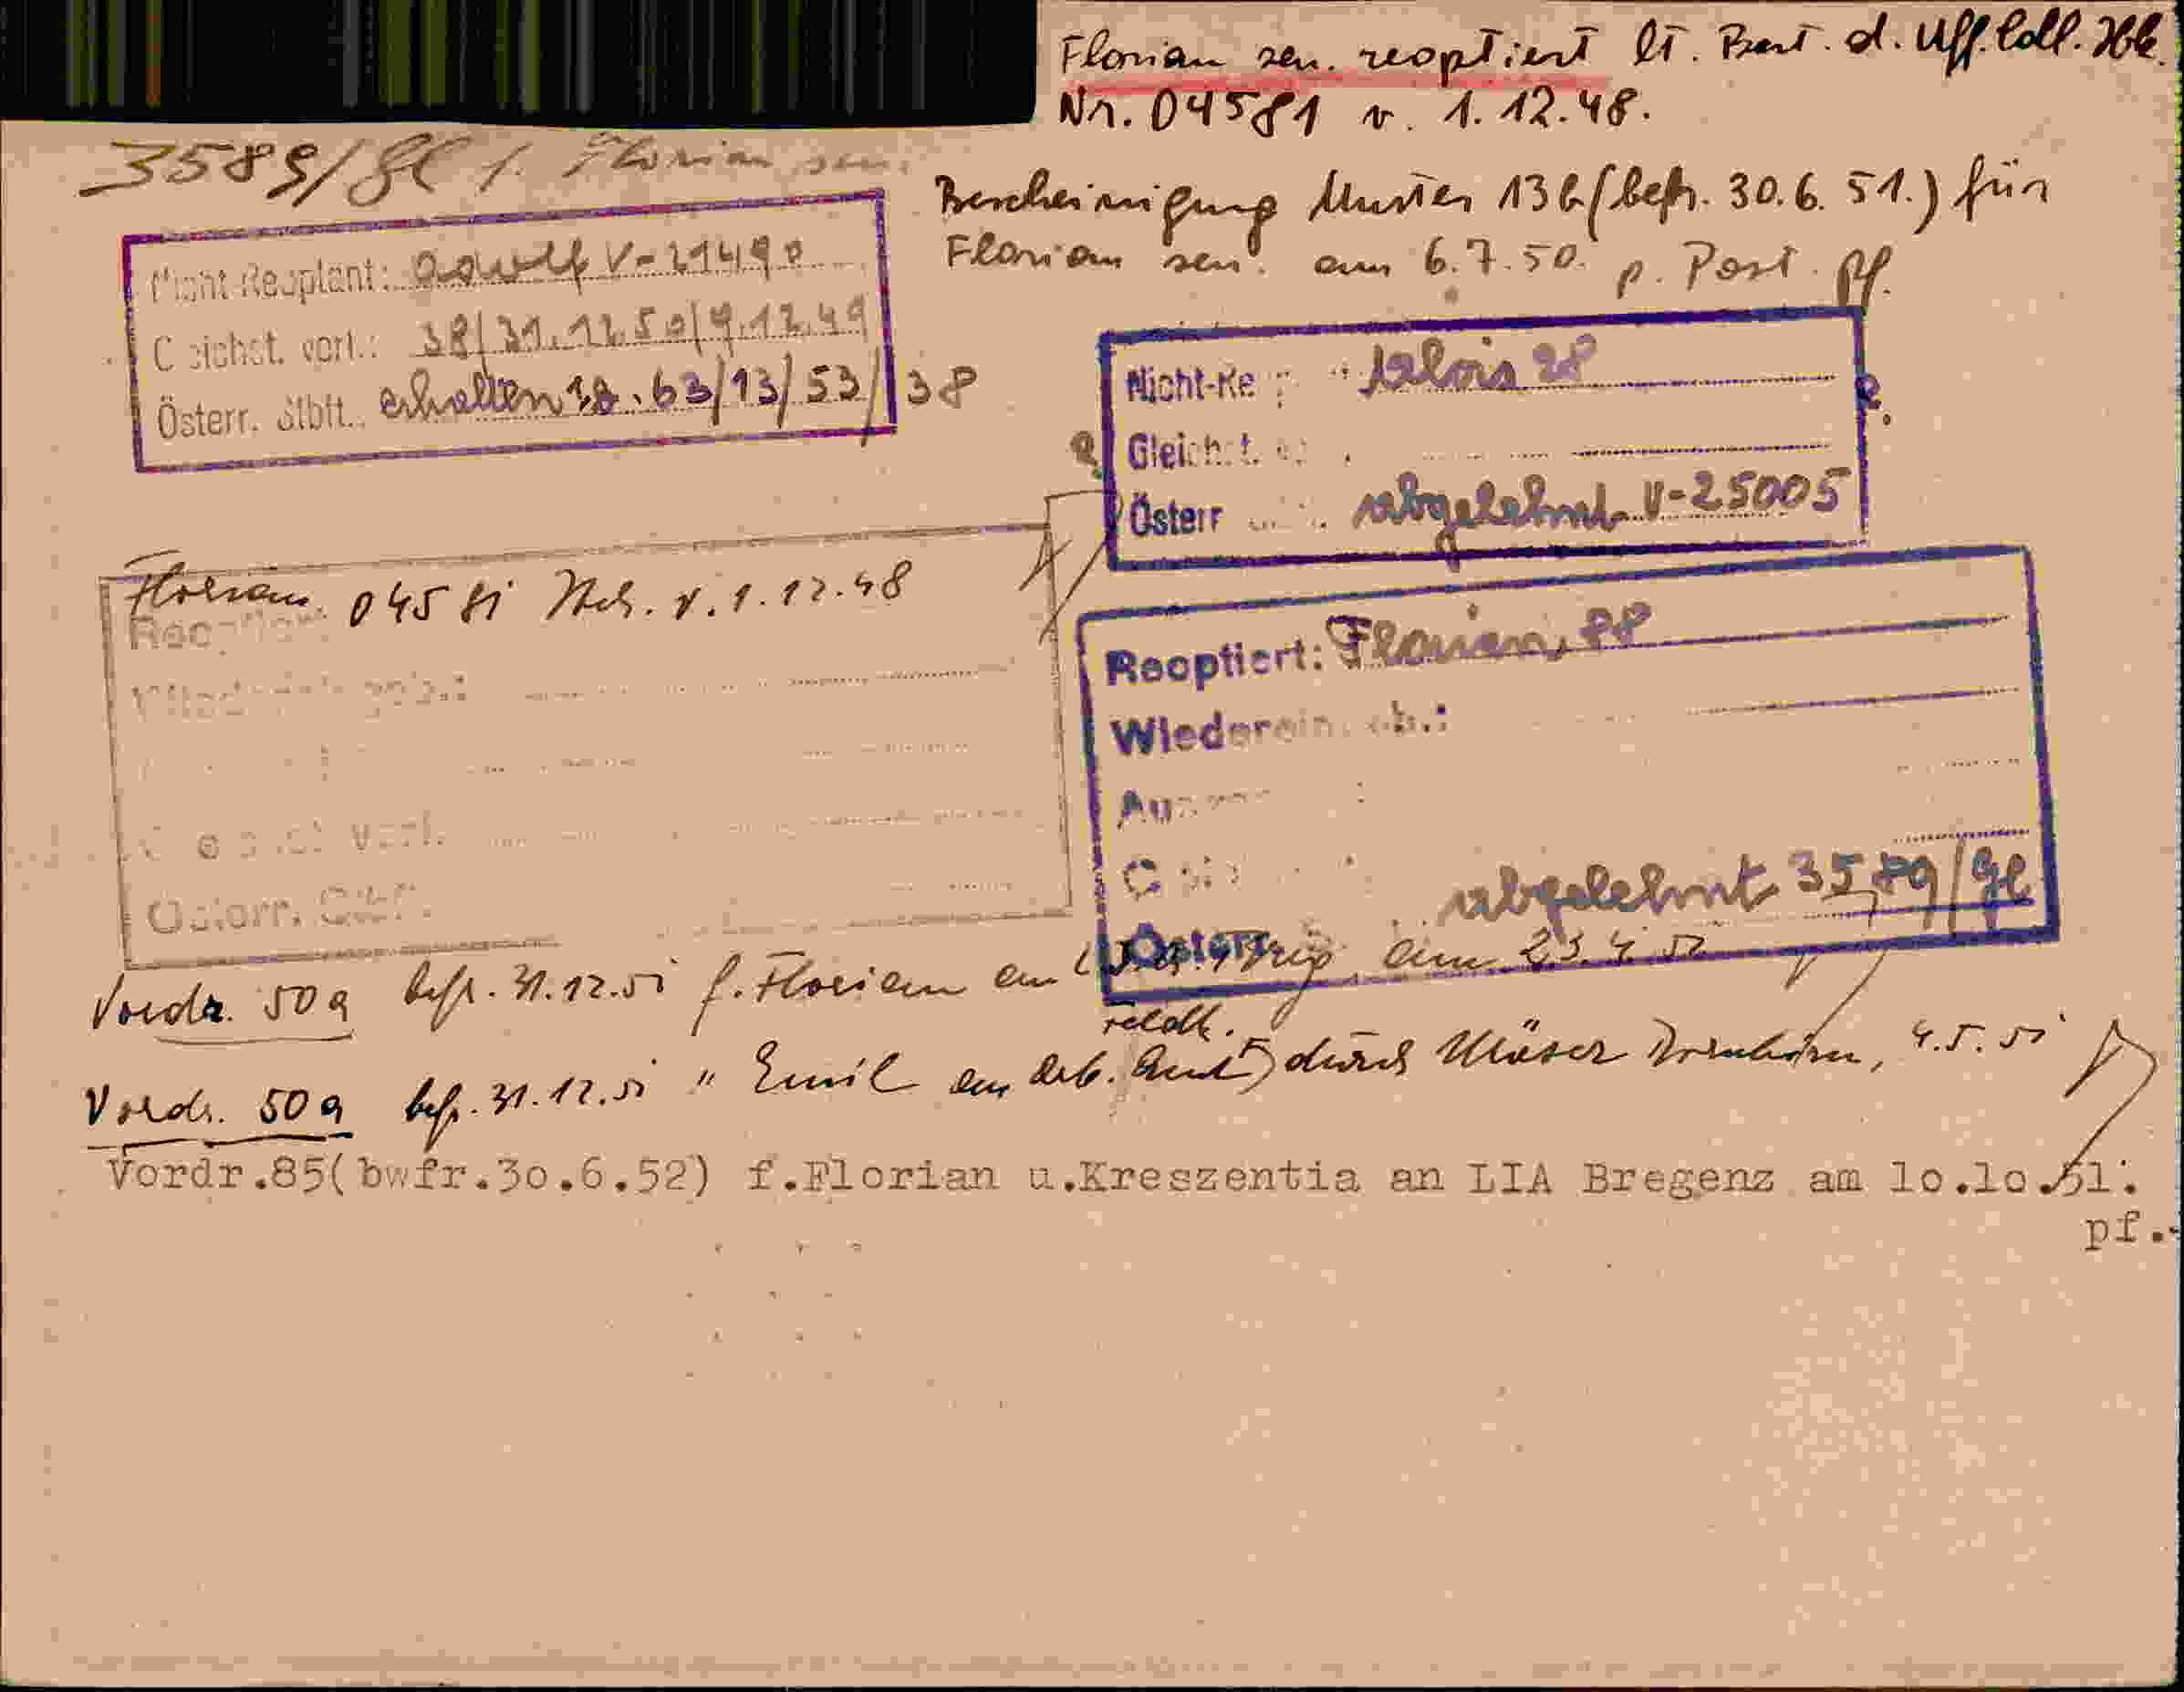 Florian sen. reoptiert lt. Best. d. Uff. Coll. Ibk.
Nr. 04581 v. 1.12.48.
3589/Gl f. Florian sen.
Bescheinigung Muster 13b (befr. 30.6.51.) für
Florian sen. am 6.7.50. p. Post. pf.
Nicht-Reoptant: Adolf V-21490
Gleichst. verl.: 38/31.12.50/9.12.49
Österr. Stbft. erhalten 18.63/13/53/38
Nicht-Re Alois 28
Gleichst.
Österr abgelehnt V-25005
Florian 04581 Ibk. v. 1.12.48
Reoptiert
Gleichst. verl.
Österr.
Reoptiert: Florian, 88
Wiedereinb.:
abgelehnt 3589/Gl
Österr.
Vordr. 50a befr. 31.12.51 f. Florian am 23.4.51
Feldk.
Vordr. 50a befr. 31.12.51 " Emil an Arb. Amt durch Mäser Dornbirn, 4.5.51
Vordr.85(bwfr.3o.6.52) f.Florian u.Kreszentia an LIA Bregenz am 1o.1o.51.
pf.-